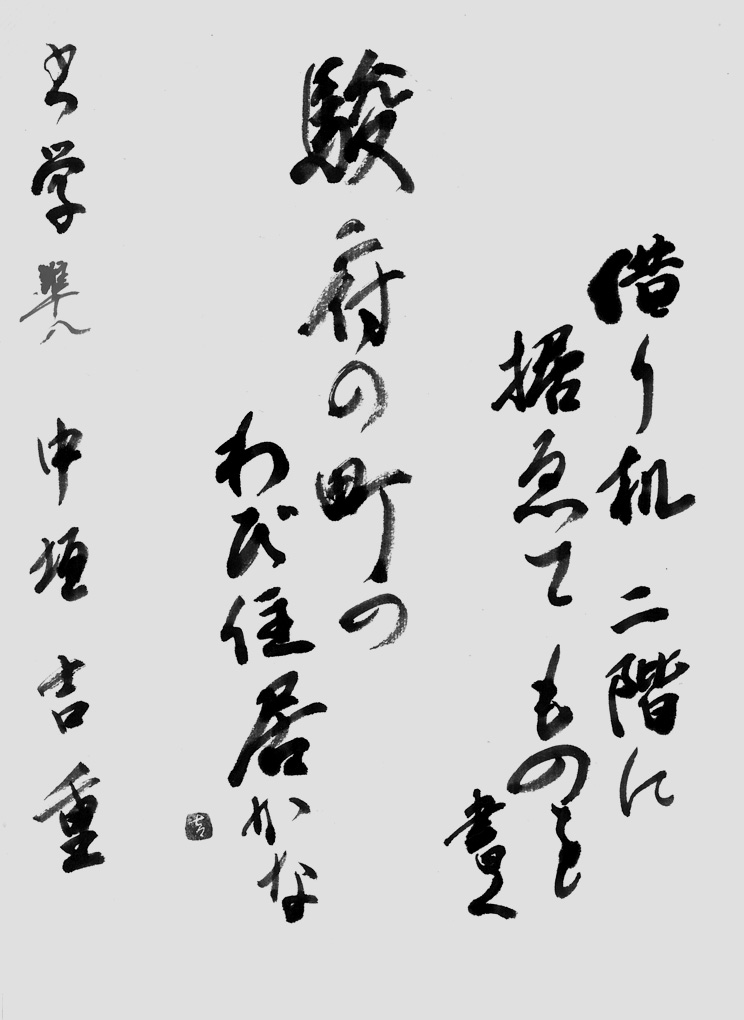 借り机 二階に
据ゑて ものを
書く
駿府の町の
わび住
居かな
書学 準八 中垣 吉重